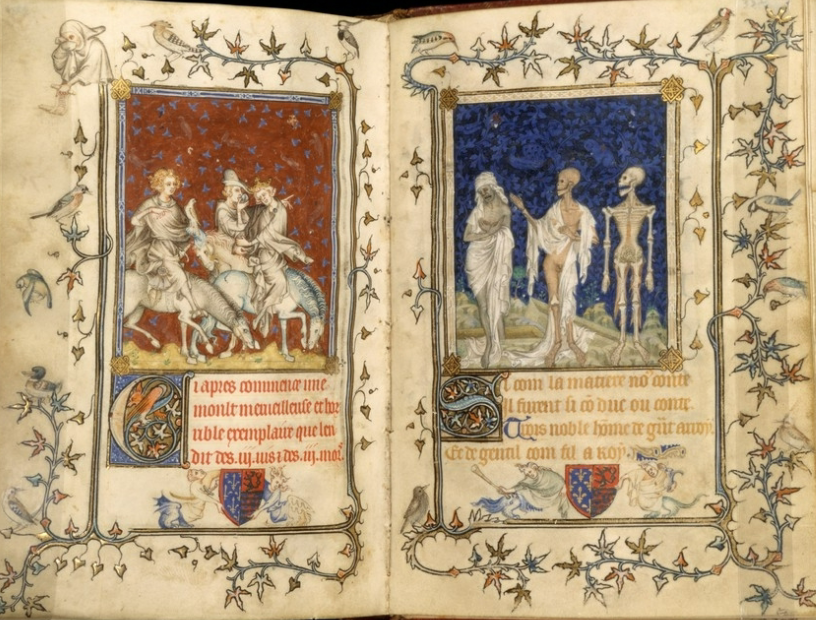 Ci apres commence une
moult merueilleuse et hor
rible exemplaire que len
dit des .iij. uis i des .iij. mors
Si com la matiere nos conte
Il furent si co duc ou conte
Trois noble home de grant arroy
Et de gentil com fil a Roy